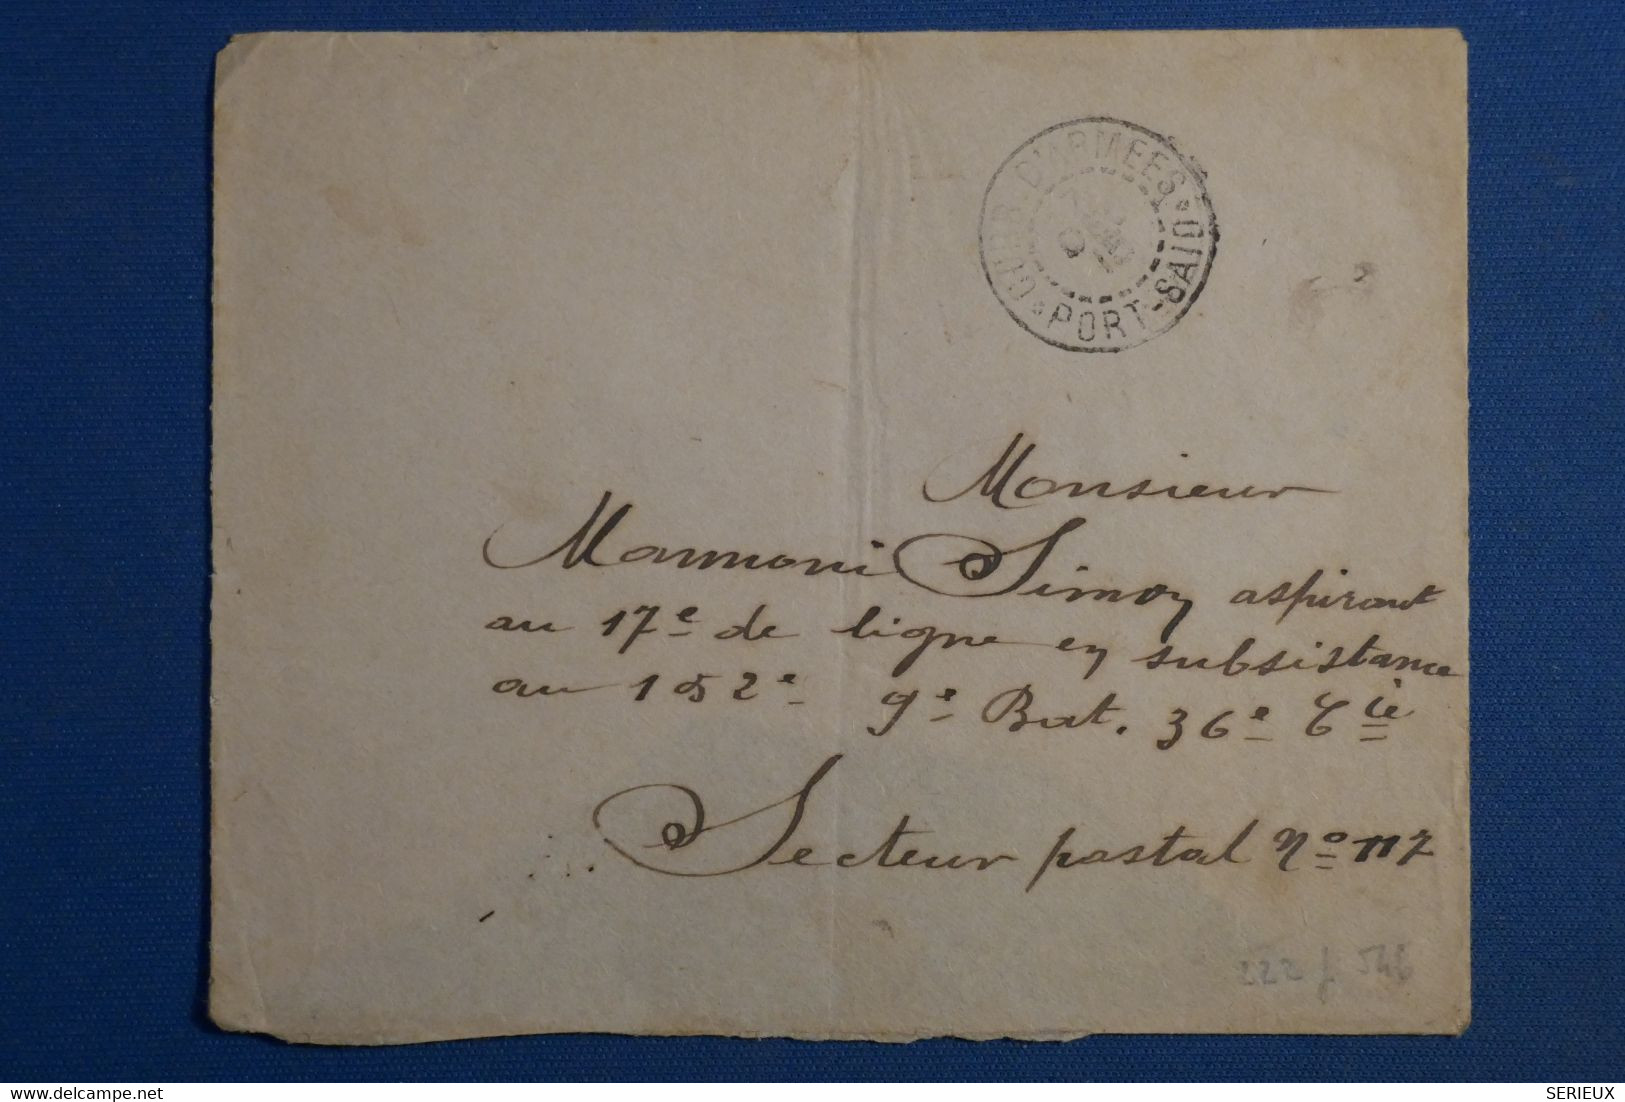 D'ARMEES · PORT-SAID
Monsieur
Mammoni Simon aspirant
au 17e de ligne en subsistance
au 152e 9e Bat. 36e Cie
Secteur postal No 117
222 f 546
SERIEUX